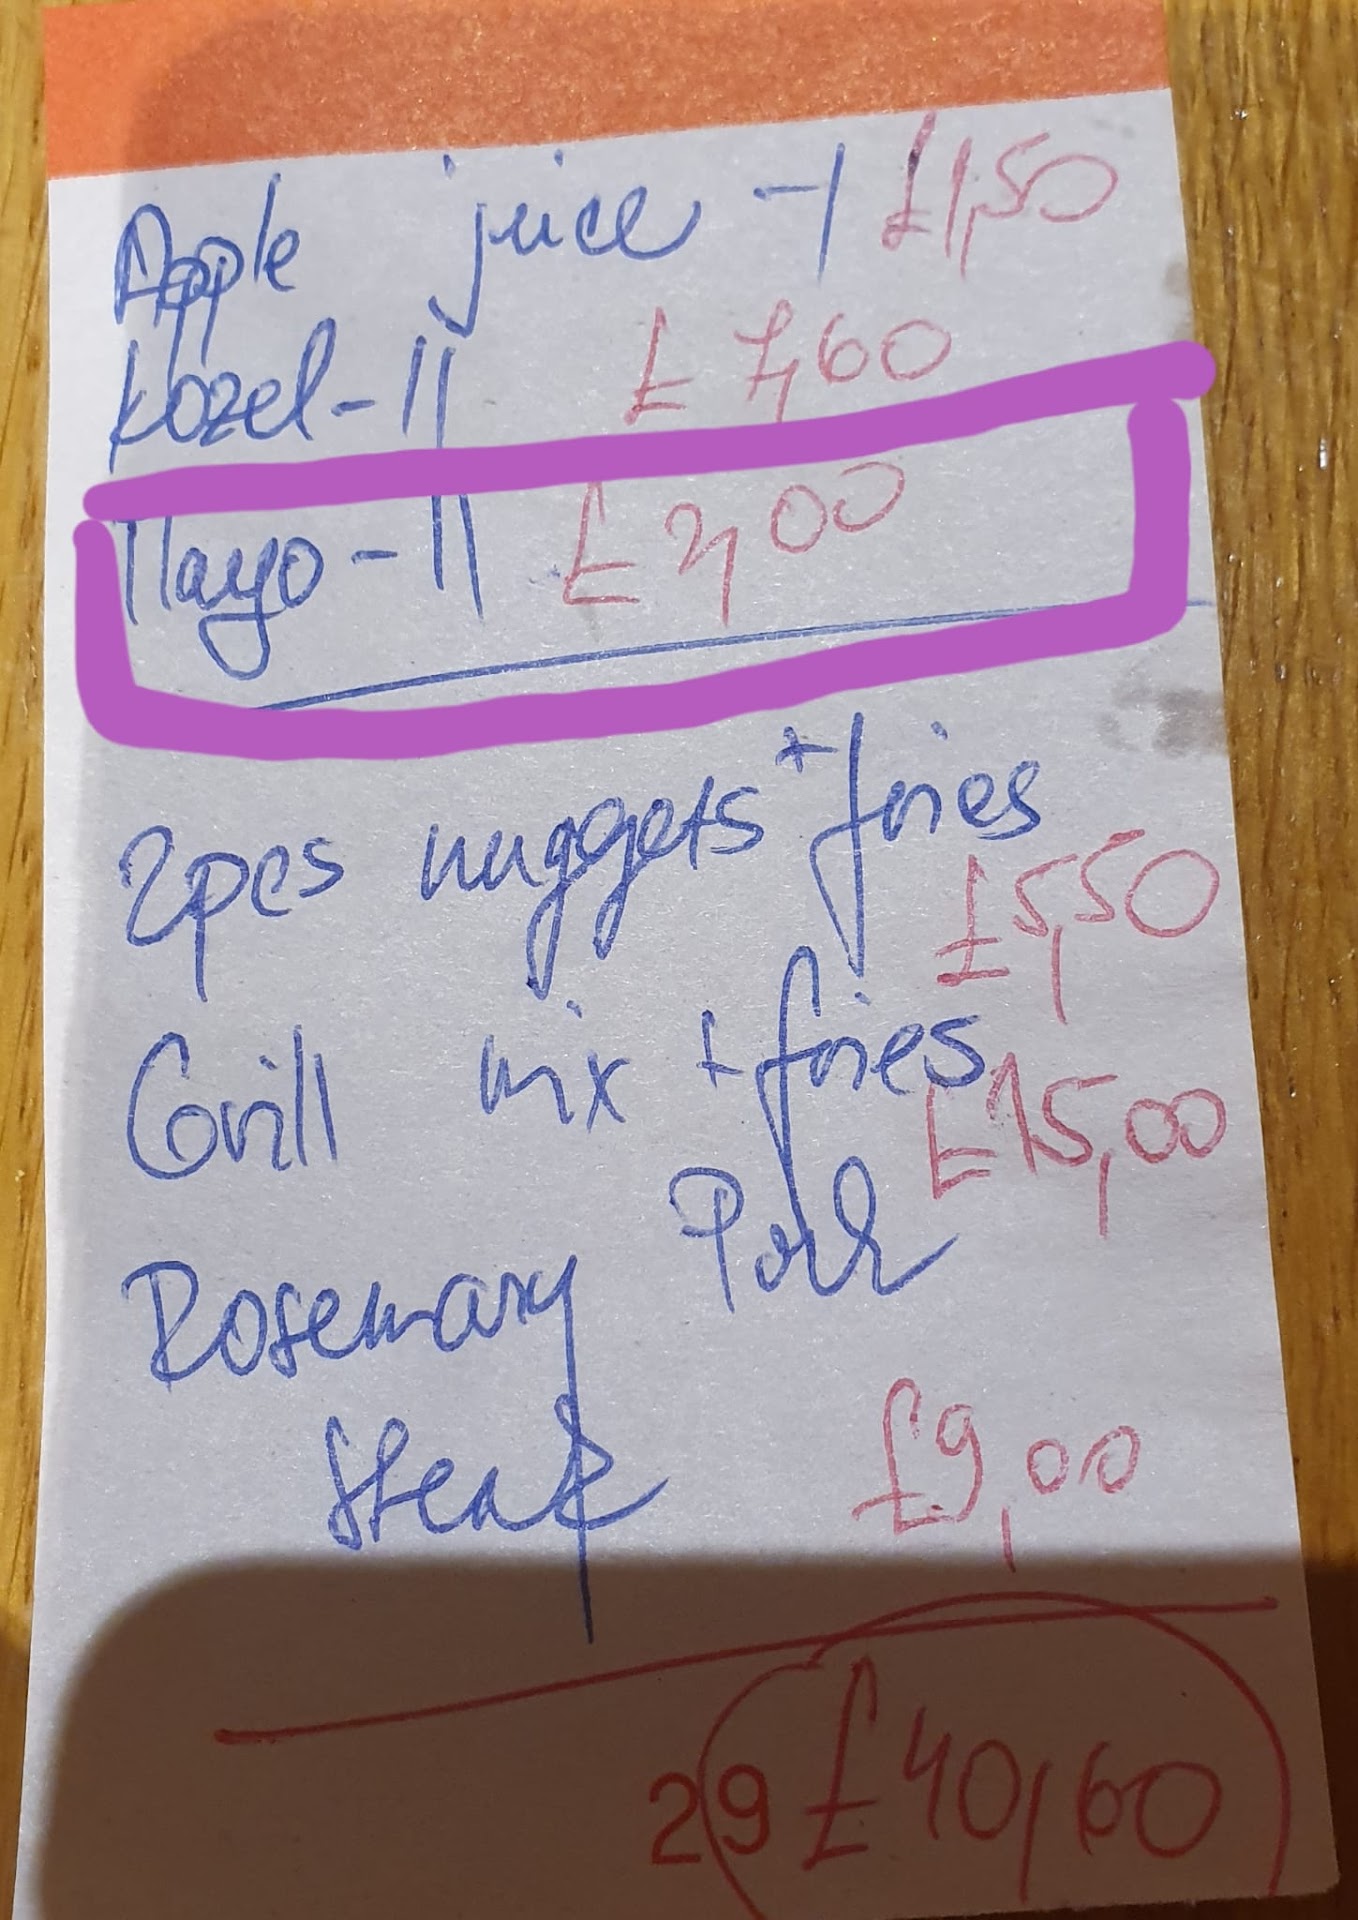 Apple juice - | £1,50
Kozel - || £ 7,60
Mayo - || £ 2,00
2pcs nuggets + fries
£5,50
Grill mix + fries
£15,00
Rosemary Pork
Steak £9,00
29 £40,60